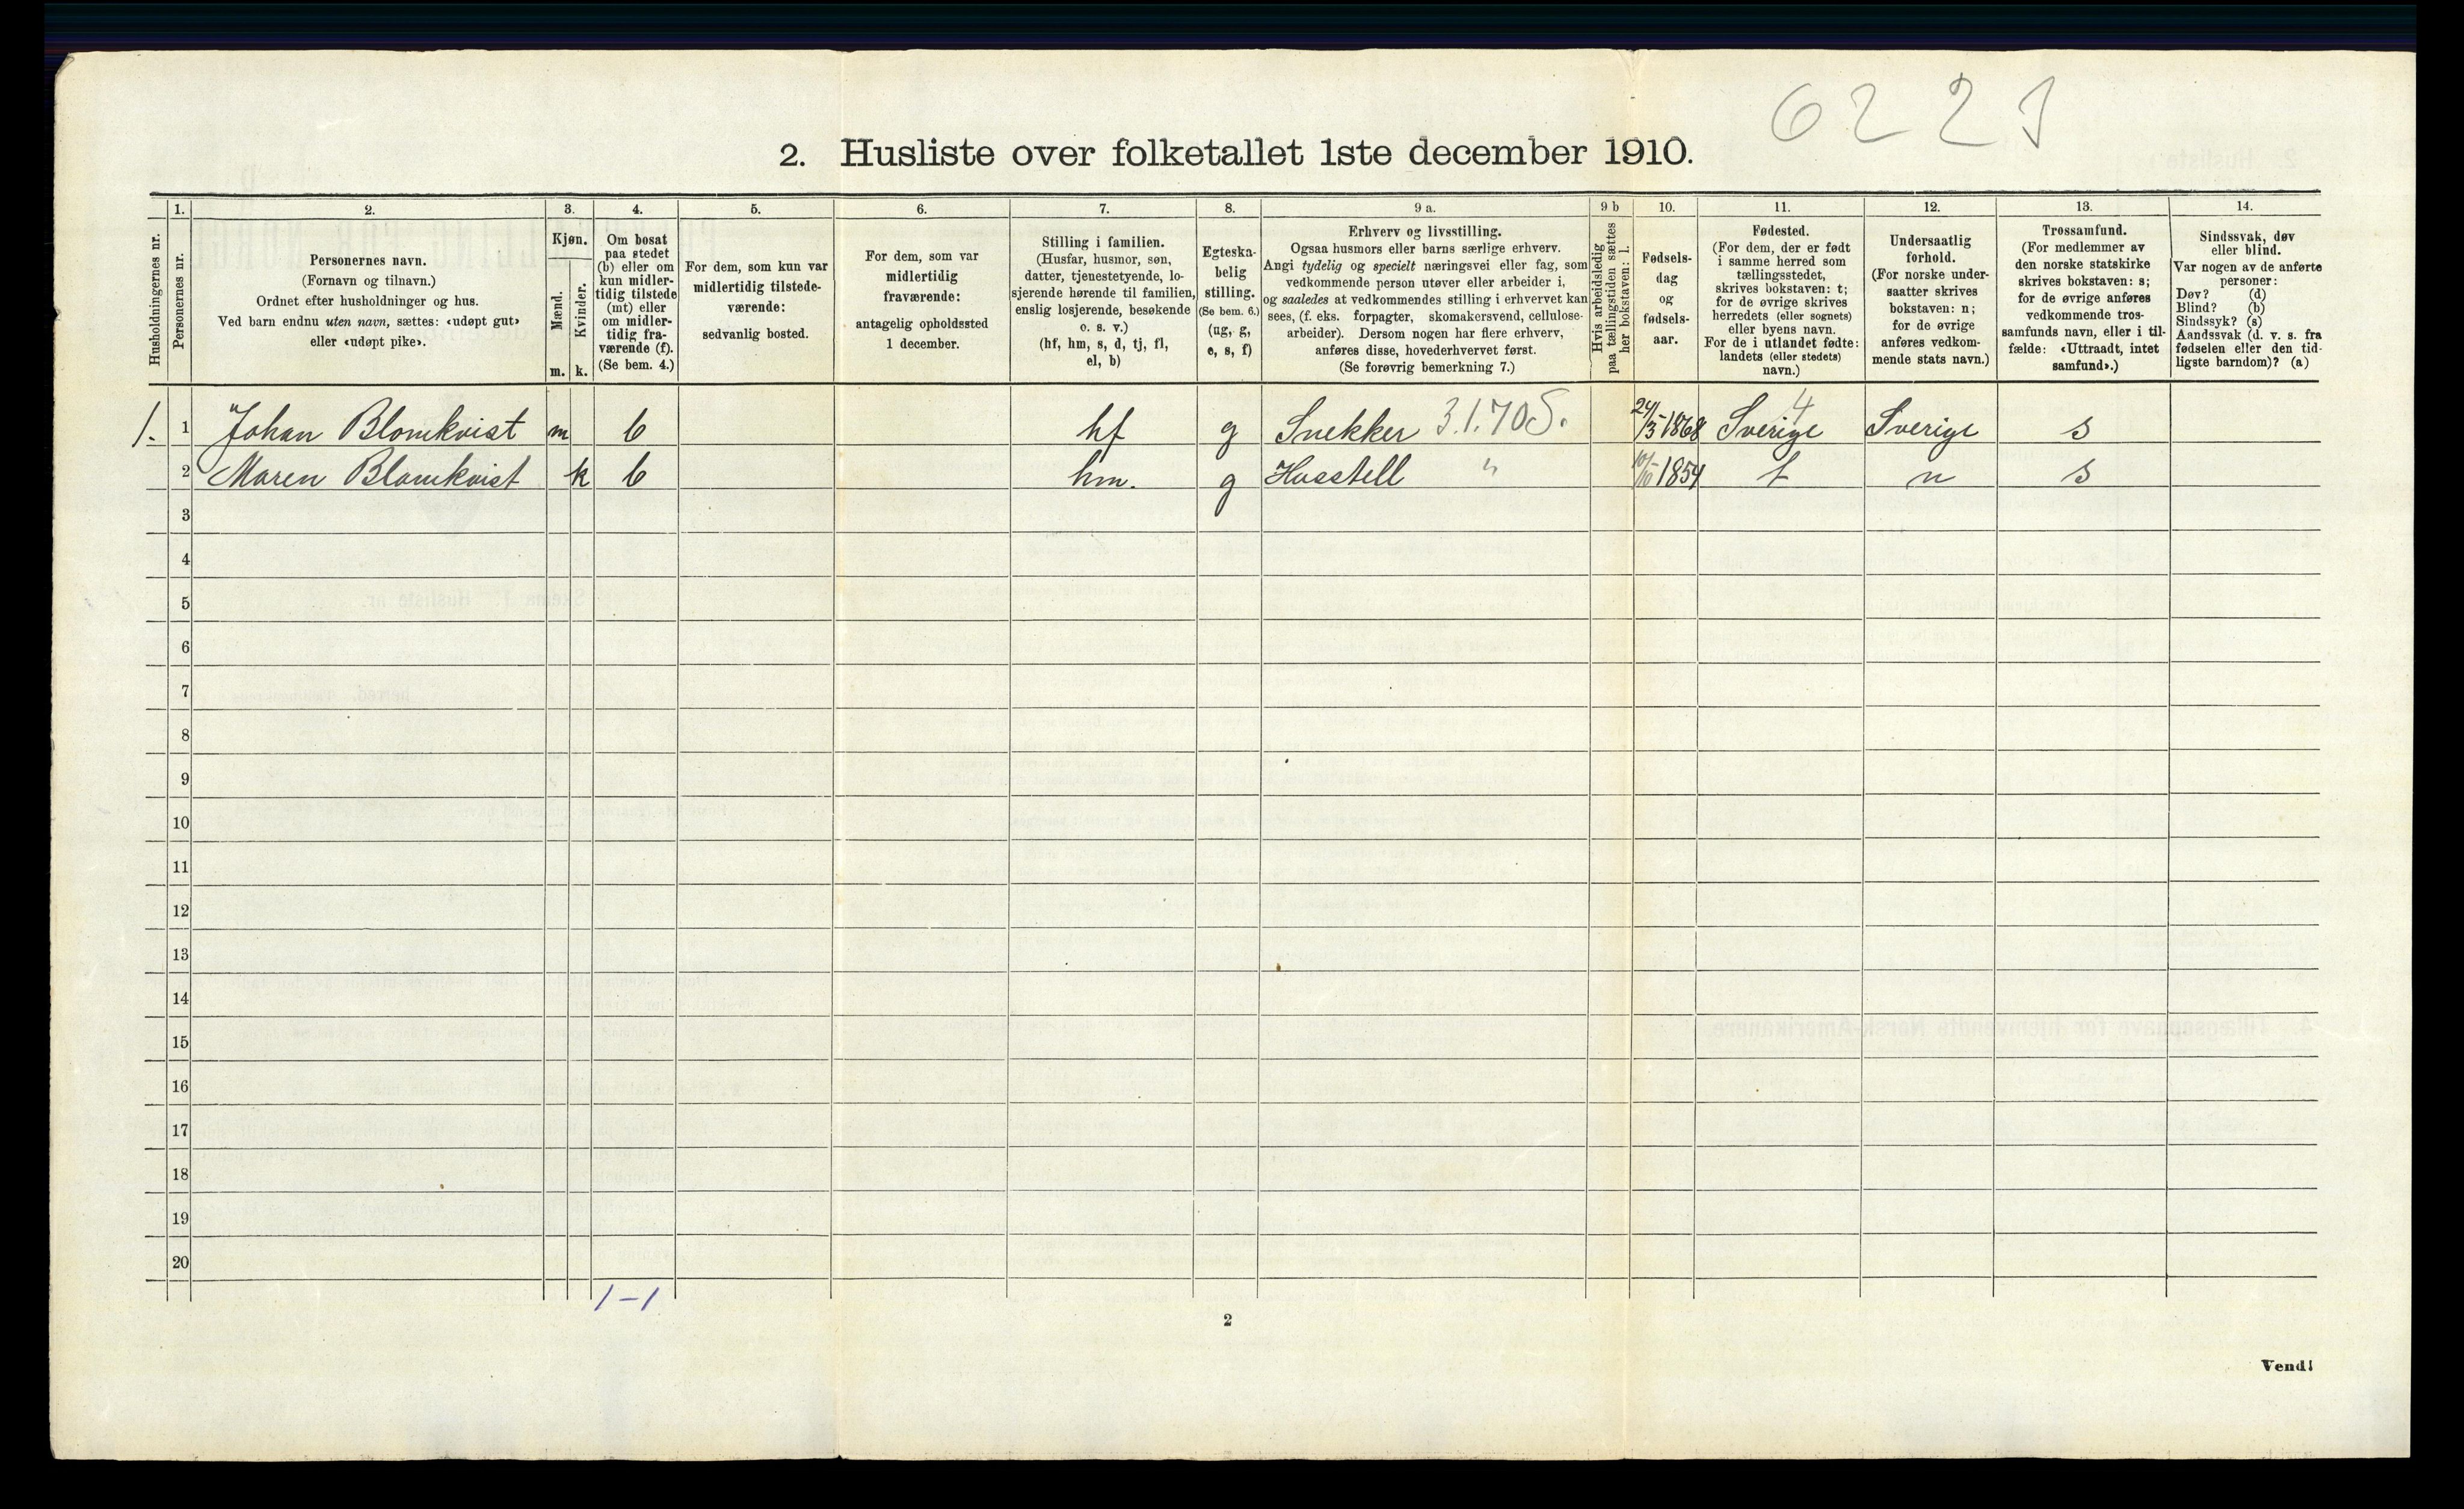 6223
2. Husliste over folketallet 1ste december 1910.
Husholdningernes nr.
1.
Personernes nr.
2.
Personernes navn.
(Fornavn og tilnavn.)
Ordnet efter husholdninger og hus.
Ved barn endnu uten navn, sættes: «udøpt gut»
eller «udøpt pike».
3.
Kjøn.
Mænd.
Kvinder.
m.
k.
4.
Om bosat
paa stedet
(b) eller om
kun midler-
tidig tilstede
(mt) eller
om midler-
tidig fra-
værende (f).
(Se bem. 4.)
5.
For dem, som kun var
midlertidig tilstede-
værende:
sedvanlig bosted.
6.
For dem, som var
midlertidig
fraværende:
antagelig opholdssted
1 december.
7.
Stilling i familien.
(Husfar, husmor, søn,
datter, tjenestetyende, lo-
sjerende hørende til familien,
enslig losjerende, besøkende
o. s. v.)
(hf, hm, s, d, tj, fl,
el, b)
8.
Egteska-
belig
stilling.
(Se bem. 6.)
(ug, g,
e, s, f)
9 a.
Erhverv og livsstilling.
Ogsaa husmors eller barns særlige erhverv.
Angi tydelig og specielt næringsvei eller fag, som
vedkommende person utøver eller arbeider i,
og saaledes at vedkommendes stilling i erhvervet kan
sees, (f. eks. forpagter, skomakersvend, cellulose-
arbeider). Dersom nogen har flere erhverv,
anføres disse, hovederhvervet først.
(Se forøvrig bemerkning 7.)
9 b
Hvis arbeidsledig
paa tællingstiden sættes
her bokstaven: l.
10.
Fødsels-
dag
og
fødsels-
aar.
11.
Fødested.
(For dem, der er født
i samme herred som
tællingsstedet,
skrives bokstaven: t;
for de øvrige skrives
herredets (eller sognets)
eller byens navn.
For de i utlandet fødte:
landets (eller stedets)
navn.)
12.
Undersaatlig
forhold.
(For norske under-
saatter skrives
bokstaven: n;
for de øvrige
anføres vedkom-
mende stats navn.)
13.
Trossamfund.
(For medlemmer av
den norske statskirke
skrives bokstaven: s;
for de øvrige anføres
vedkommende tros-
samfunds navn, eller i til-
fælde: «Uttraadt, intet
samfund».)
14.
Sindssvak, døv
eller blind.
Var nogen av de anførte
personer:
Døv? (d)
Blind? (b)
Sindssyk? (s)
Aandssvak (d. v. s. fra
fødselen eller den tid-
ligste barndom)? (a)
1. 1 Johan Blomkvist m b hf g Snekker 3.1.705. 24/3-1868 Sverige 4 Sverige s
2 Maren Blomkvist k b hm. g Husstell " 10/10-1854 t n s
3
4
5
6
7
8
9
10
11
12
13
14
15
16
17
18
19
20
1-1
2
Vend!